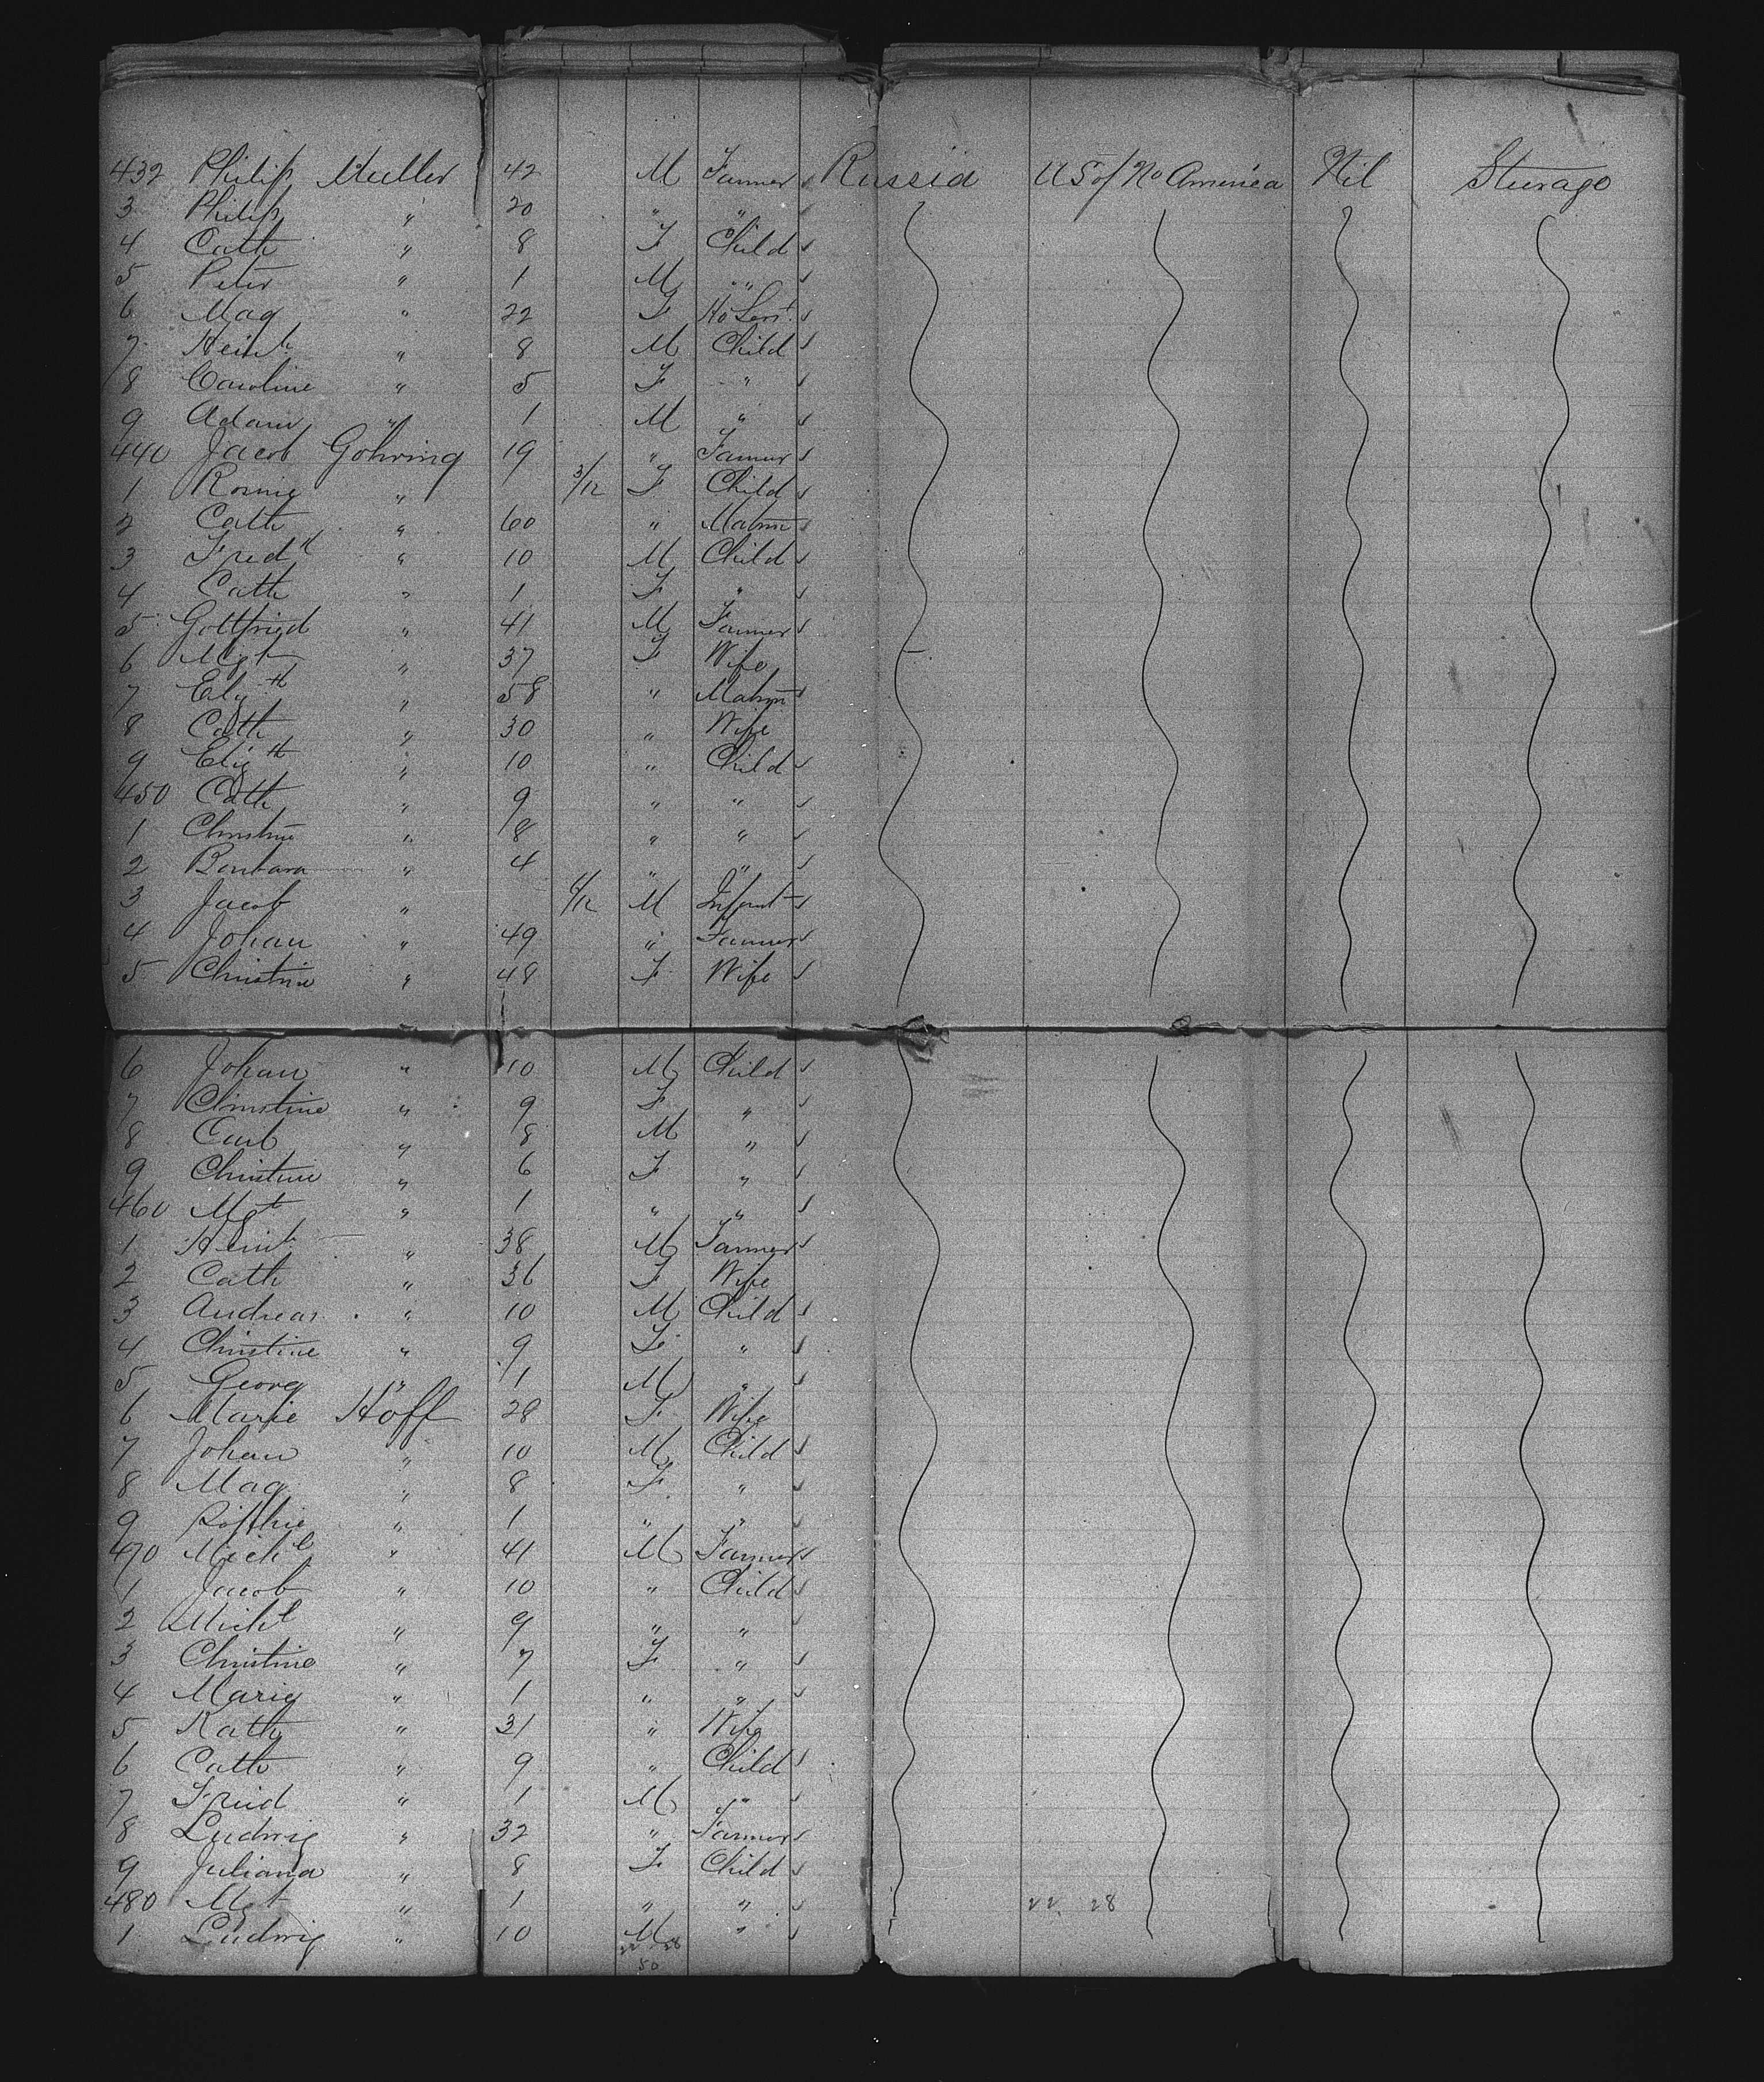 432 Philip Muller 42 M Farmer Russia U S of No America Nil Steerage
3 Philip " 20 " "
4 Cath " 8 F Child
5 Peter " 1 M "
6 Mag " 22 F Ho Servt
7 Heinh " 8 M Child
8 Caroline " 5 F "
9 Adam " 1 M "
440 Jacob Gohring 19 " Farmer
1 Rosnie " 3/12 F Child
2 Cath " 60 " Matrn
3 Fredk " 10 M Child
4 Cath " 1 F "
5 Gottfried " 41 M Farmer
6 Mgt " 37 F Wife
7 Elizth " 58 " Matrn
8 Cath " 30 " Wife
9 Elizth " 10 " Child
450 Cath " 9 " "
1 Christine " 8 " "
2 Barbara " 4 " "
3 Jacob " /12 M Infant
4 Johan " 49 " Farmer
5 Christine " 48 F Wife
6 Johan " 10 M Child
7 Christine " 9 F "
8 Carl " 8 M "
9 Christine " 6 F "
460 Mgt " 1 " "
1 Heinh " 38 M Farmer
2 Cath " 36 F Wife
3 Andreas " 10 M Child
4 Christine " 9 F "
5 Georg " 1 M "
6 Marie Hoff 28 F Wife
7 Johan " 10 M Child
8 Mag " 8 F "
9 Sophie " 1 " "
470 Michl " 41 M Farmer
1 Jacob " 10 " Child
2 Michl " 9 " "
3 Christine " 7 F "
4 Marie " 1 " "
5 Kath " 31 " Wife
6 Cath " 9 " Child
7 Fried " 1 M "
8 Ludwig " 32 " Farmer
9 Juliana " 8 F Child
480 Mgt " 1 " " 22 28
1 Ludwig " 10 M "
22 28
50